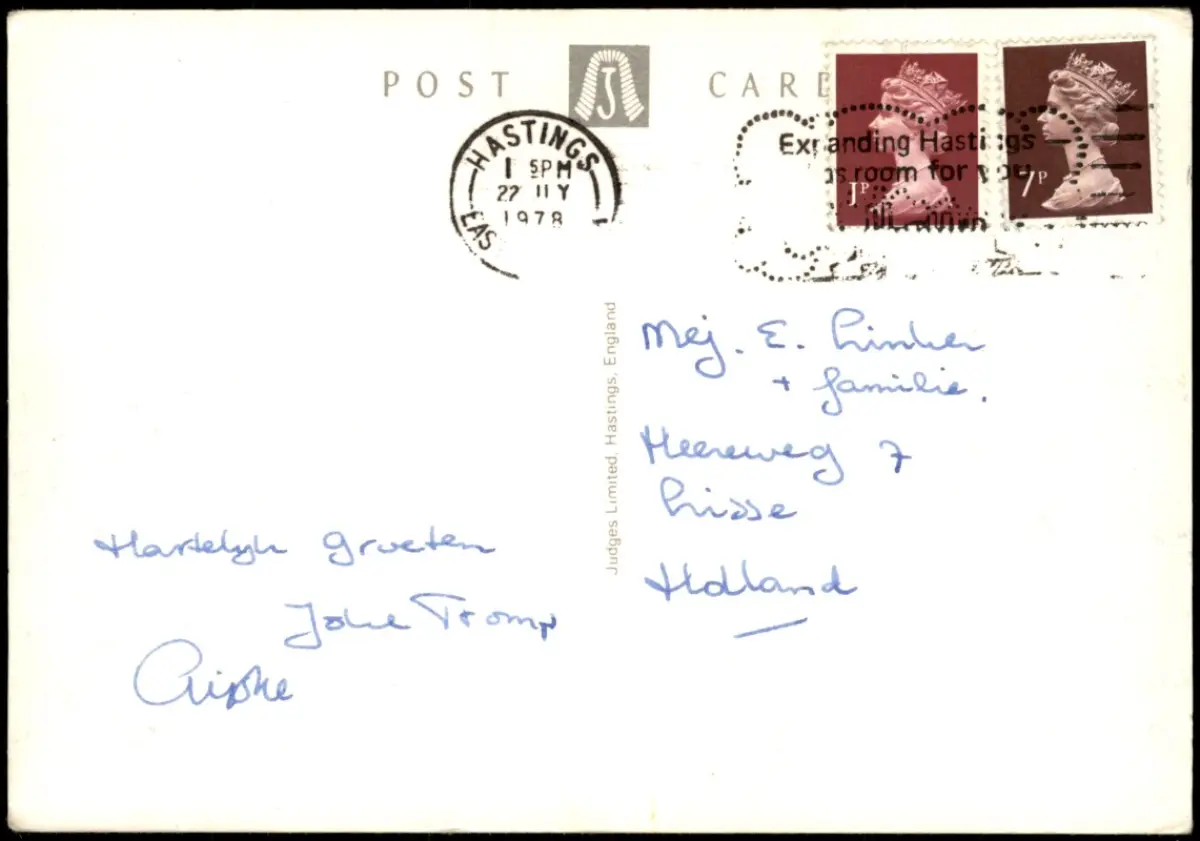 POST CARD
J
HASTINGS
1 5PM
22 1978
EAS
Expanding Hastings
has room for you
1P
7P
Judges Limited, Hastings, England
Mej. E. Linker
+ familie.
Heereweg 7
Lisse
Holland
Hartelijk groeten
Joke Tromp